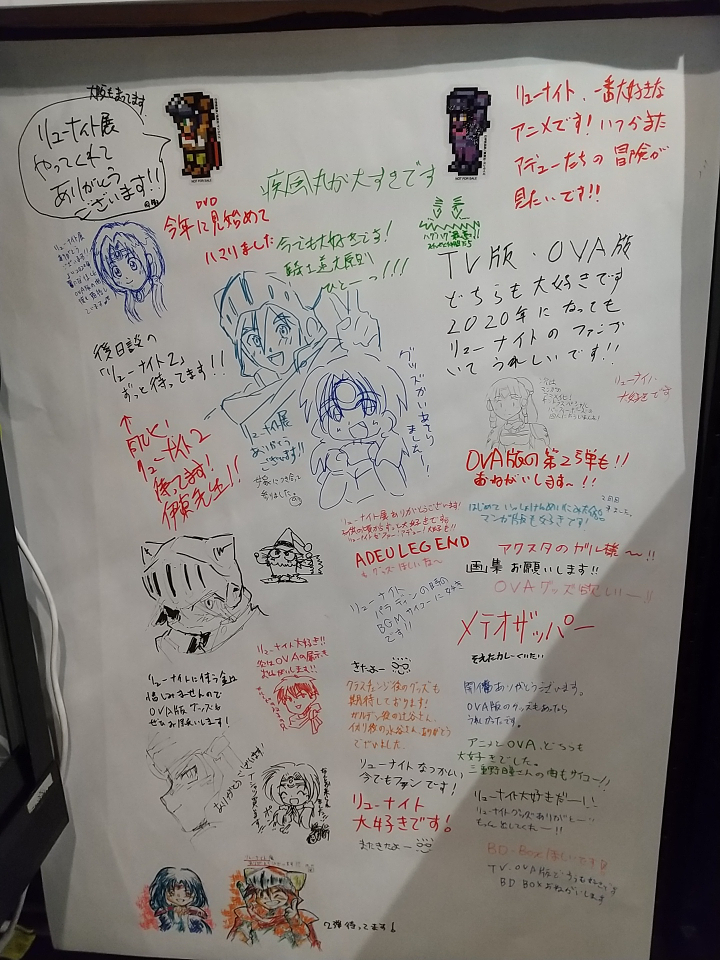 大阪もまってます!
リューナイト展
やってくれて
ありがとう
ございます!!
NOT FOR SALE
NOT FOR SALE
リューナイト、一番大好きな
アニメです!いつかまた
アデューたちの冒険が
見たいです!!
疾風丸が大すきです
DVD
今年に見始めて
ハマりました
今でも大好きです!
騎士道大原則
ひとーっ!!!
リューナイト展
ありがとう
ございます!
TV版・OVA版
どちらも大好きです
2020年になっても
リューナイトのファンで
いてうれしいです!!
後日談の
「リューナイト2」
ずっと待ってます!!
↑
同じく!
リューナイト2
待ってます!
伊東先生!!
リューナイト展
ありがとう
ございます!!
グッズがいあさり
ました!!
リューナイト
大好きです
OVA版の第2弾も!!
おねがいします~!!
マンガ版も好きです!
リューナイト展ありがとうございます!
ADEU LEGEND
グッズほしいな~
アクスタのガル様~!!
画集お願いします!!
OVAグッズ欲しいー!!
リューナイト
パラディンの時の
BGMサイコーに好き
です!!
メテオザッパー
そえたカレーくいたい
リューナイト大好き!!
次はOVAの展示を
お願いします!!
リューナイトに使う金は
惜しみませんので
OVA版グッズも
ぜひお願いします!
きたよー
クラスチェンジ後のグッズも
期待しております!
ありがとう
ございました
開催ありがとうございます。
OVA版のグッズもあったら
うれしかったです。
アニメとOVA、どちらも
大好きでした。
三重野瞳さんの曲もサイコー!!
リューナイトなつかしい
今でもファンです!
リューナイト
大好きです!
またきたよー
リューナイト大好きだー!!
リューナイトグッズありがとー!
もっと出してくれー!!
ありがとうございます!
BD-Boxほしいです!!
TV、OVA版どっちもすきです
BD BOXおねがいします
2弾待ってます!